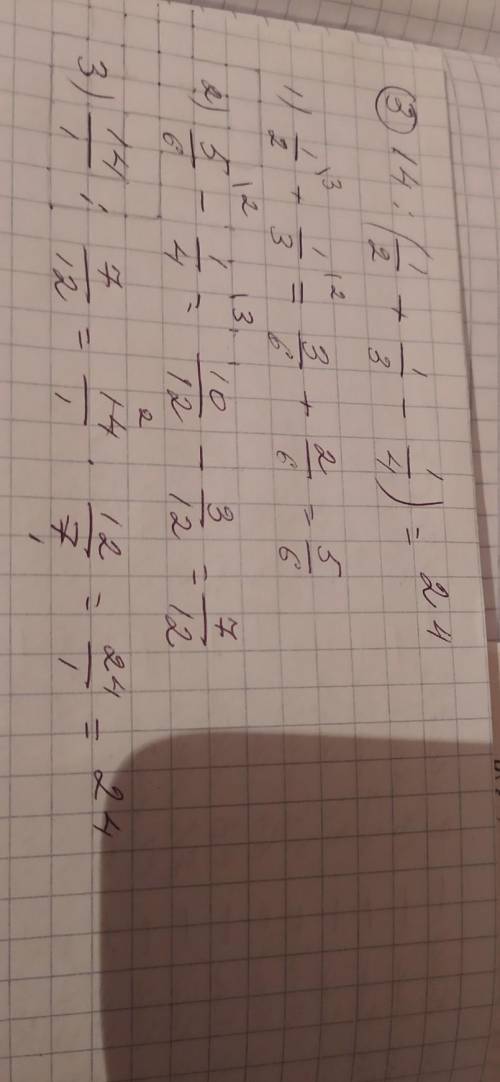 ③ 14 : (1/2 + 1/3 - 1/4) = 24
1) 1/2 \3 + 1/3 \2 = 3/6 + 2/6 = 5/6
2) 5/6 \2 - 1/4 \3 = 10/12 - 3/12 = 7/12
3) 14/1 : 7/12 = 14 2/1 · 12/7 1 = 24/1 = 24